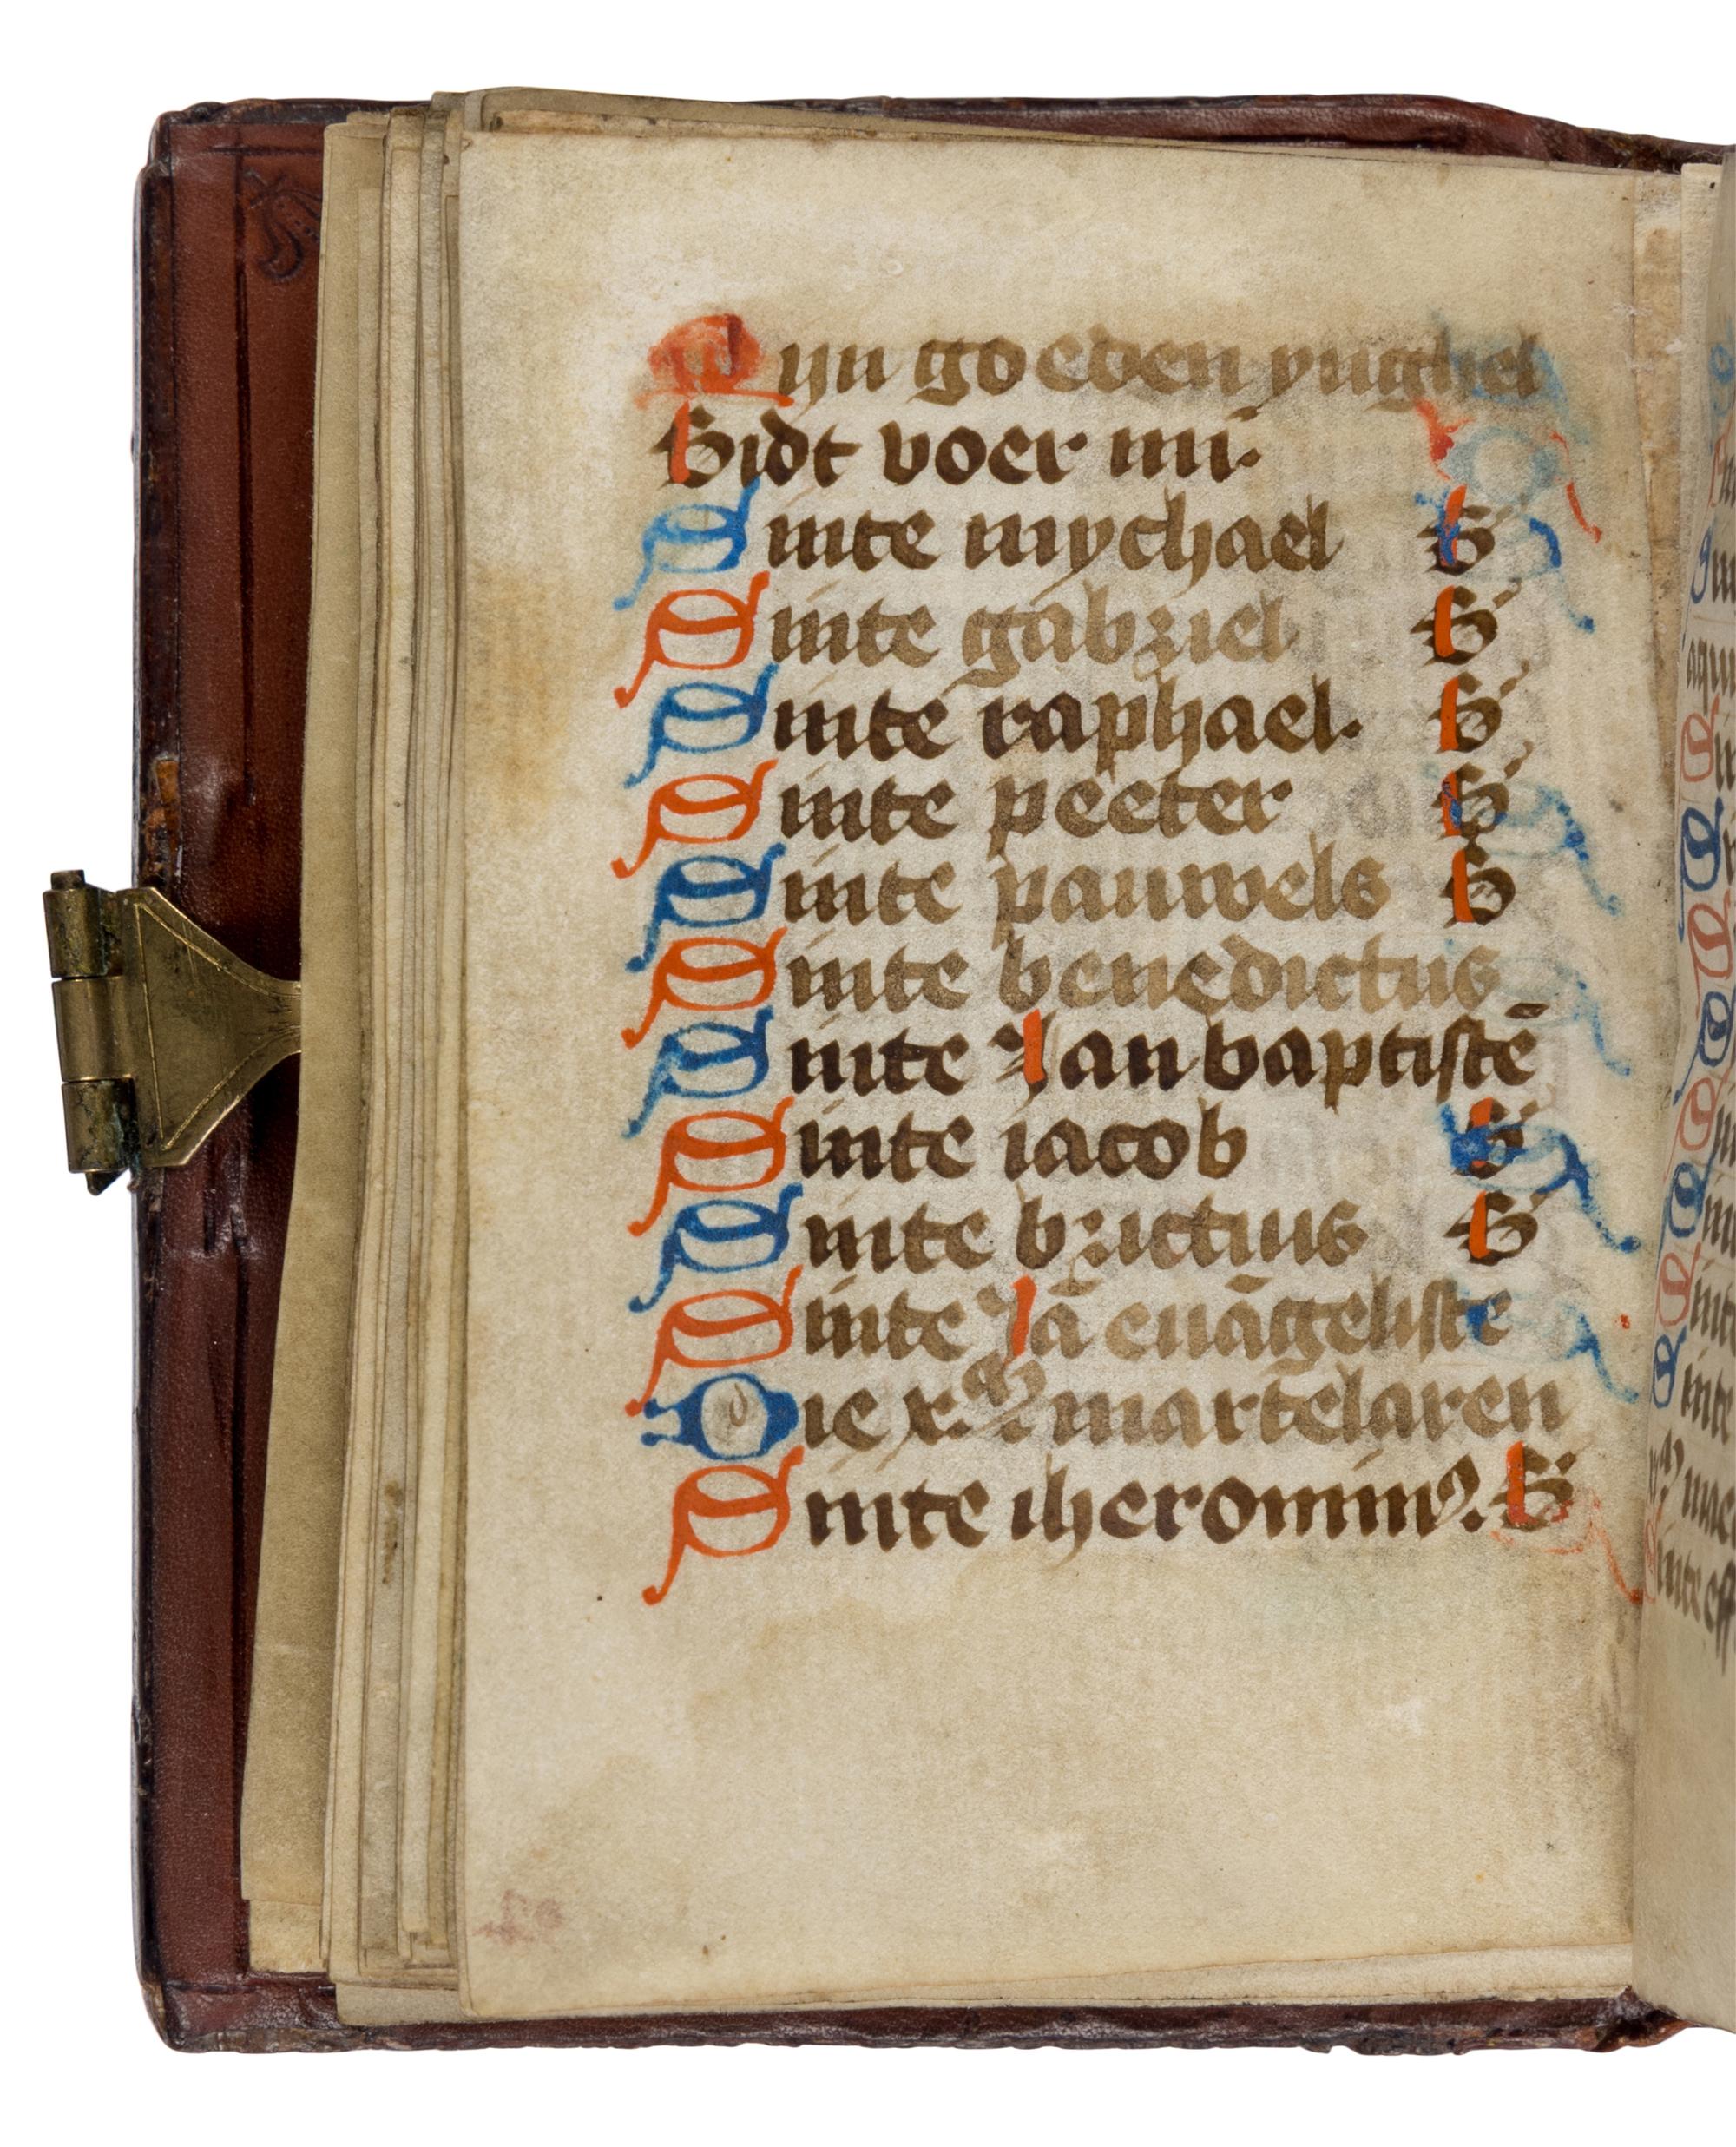 Mijn goeden ynghel
Bidt voer mi.
Sinte mychael B
Sinte gabriel B
Sinte raphael. B
Sinte peeter B
Sinte pauwels B
Sinte benedictus
Sinte Jan baptistē
Sinte iacob B
Sinte brictius B
Sinte Jā euāgeliste
Die x.M martelaren
Sinte iheronimꝰ. B